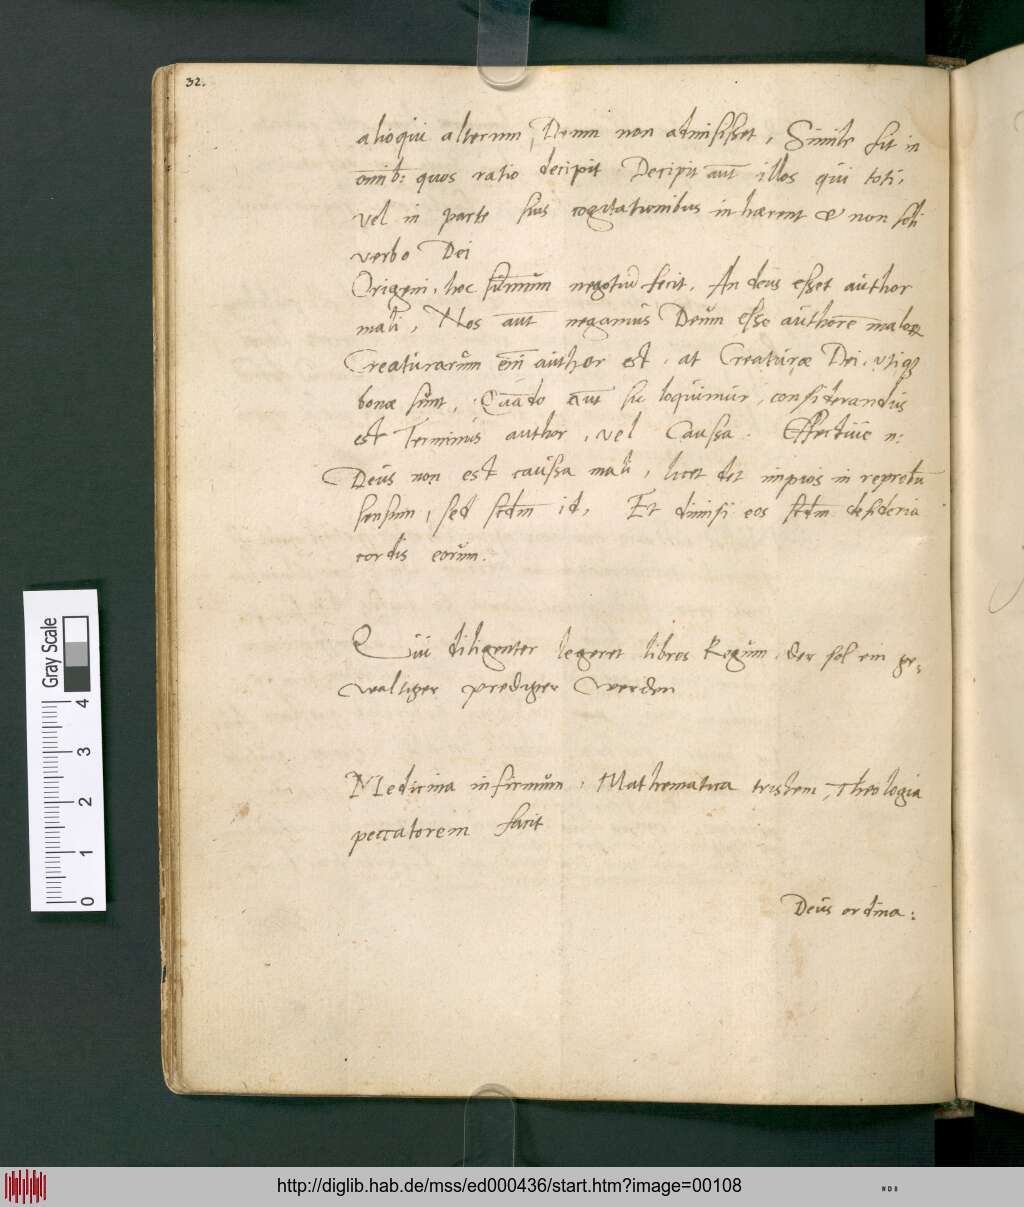 32.
alioqui alterum Deum non admisisset, Simile fit in
omnib: quos ratio decipit Decipit aūt illos qui toti,
vel in parte suis cogitationibus inhærent & non soli
verbo Dei
Origeni, hoc sum̄um negotiū fecit, An deus esset author
mali, Nos aūt negamus Deum esse authorē malorꝝ
Creaturarum em̄ author est, at Creaturæ Dei, utiqꝫ
bonæ sunt, Quādo aūt sic loquimur, considerandus
est Terminus author, vel Caussa. Effectiue n:
Deus non est caussa mali, licet det impios in reprobū
sensum, sed scdm̄ id, Et dimisi eos scdm̄ desideria
cordis eorum.
Qui diligenter legeret libros Regum, der sol ein ge,
waltiger prediger werden
Medicina infirmum, Mathematica tristem, Theologia
peccatorem facit
Deus ordina:
Gray Scale
4
3
2
1
0
http://diglib.hab.de/mss/ed000436/start.htm?image=00108